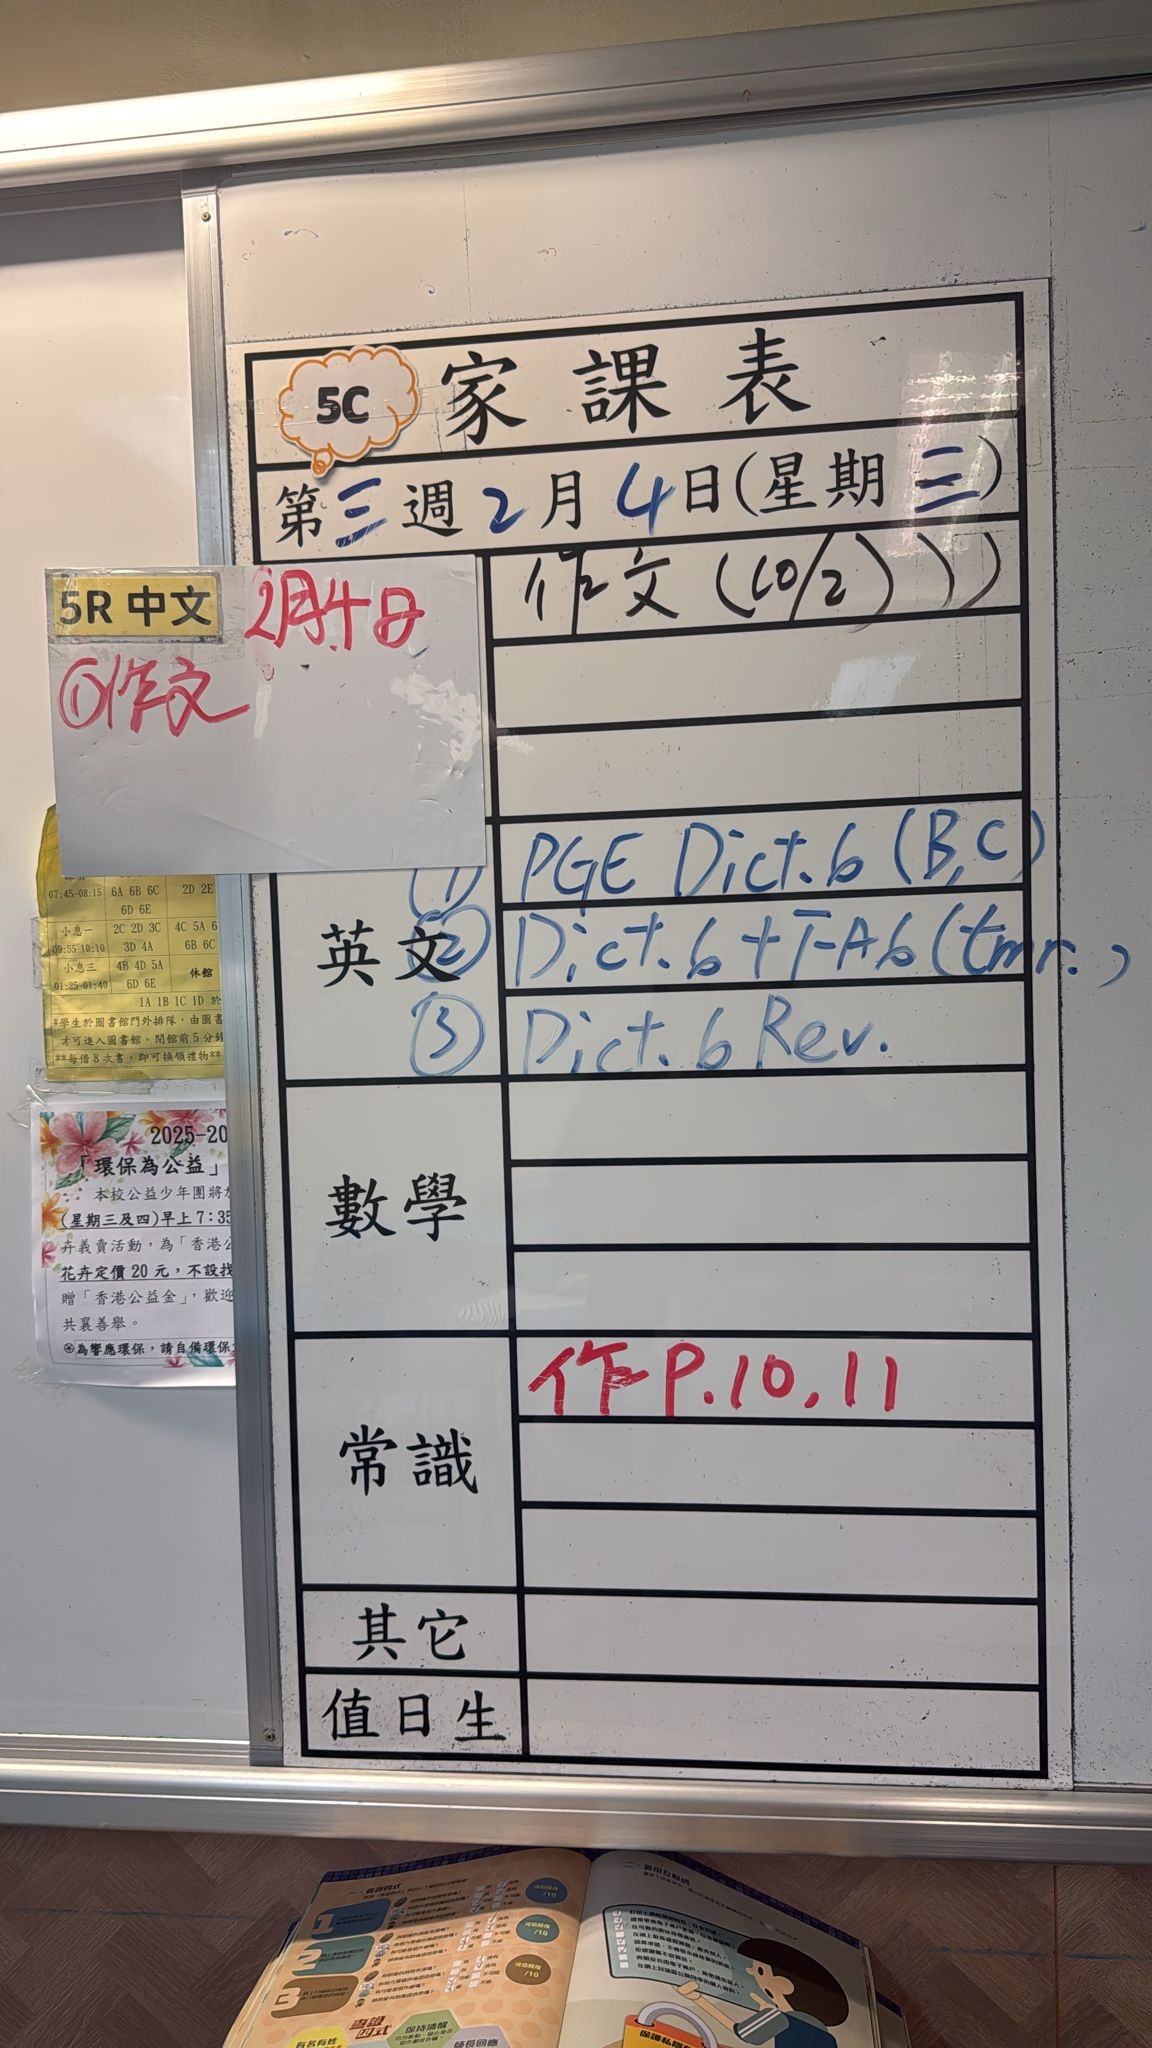 5C
家課表
第三週2月4日(星期三)
5R 中文
2月4日
①作文
作文(10/2)))
英文
(1) PGE Dict.6 (B,C)
② Dict.6 + T-A6 (tmr.,
③ Dict.6 Rev.
數學
常識
作P.10,11
其它
值日生
07:45-08:15 6A 6B 6C 2D 2E
6D 6E
小息一 2C 2D 3C 4C 5A 6
09:55-10:10 3D 4A 6B 6C
小息三 4B 4D 5A 休館
01:25-01:40 6D 6E
1A 1B 1C 1D 於
*學生於圖書館門外排隊，由圖書
才可進入圖書館。閉館前5分鐘
**每借8次書，即可換領禮物**
2025-20
「環保為公益」
本校公益少年團將於
(星期三及四)早上7:35
卉義賣活動，為「香港公
花卉定價20元，不設找
贈「香港公益金」，歡迎
共襄善舉。
為響應環保，請自備環保
1
2
3
/10
/10
/10
查證四式
保持清醒
有名有姓
師長回應